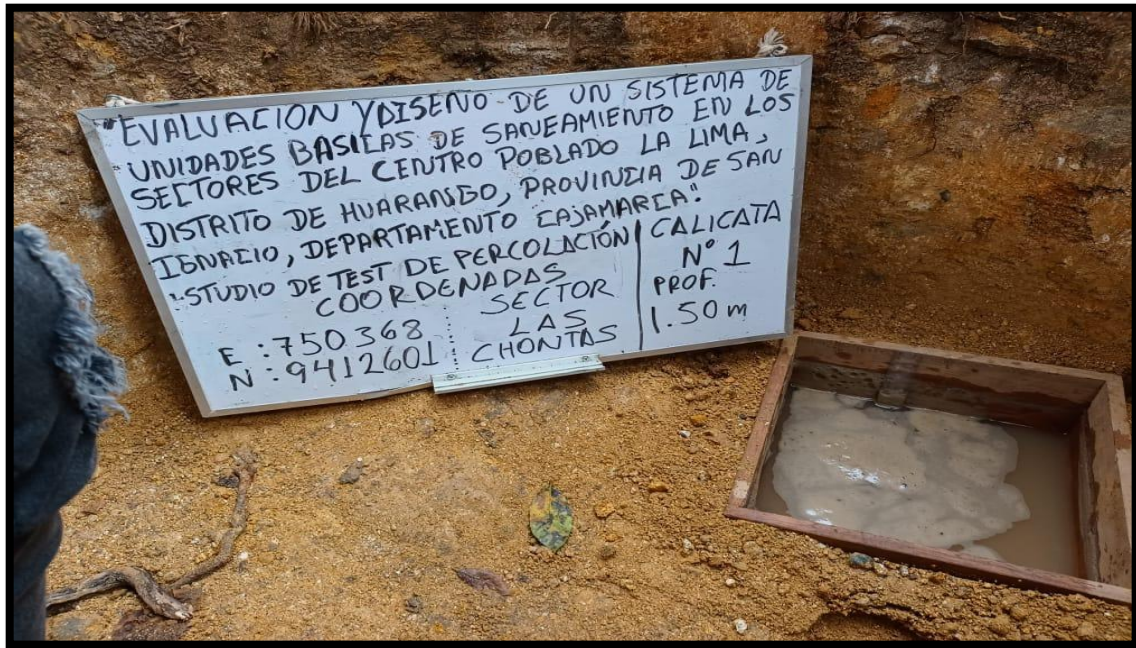 "EVALUACION Y DISEÑO DE UN SISTEMA DE
UNIDADES BASICAS DE SANEAMIENTO EN LOS
SECTORES DEL CENTRO POBLADO LA LIMA,
DISTRITO DE HUARANGO, PROVINCIA DE SAN
IGNACIO, DEPARTAMENTO CAJAMARCA".
STUDIO DE TEST DE PERCOLACIÓN
COORDENADAS
E : 750368
N : 9412601
SECTOR
LAS
CHONTAS
CALICATA
N° 1
PROF.
1.50 m